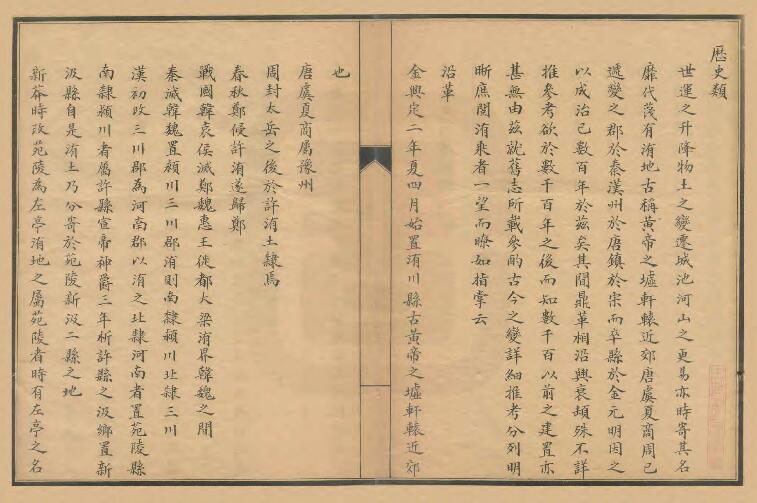 歷史類
世運之升降物土之變遷城池河山之更易亦時寄其名
靡代蔑有洧地古稱黃帝之墟軒轅近郊唐虞夏商周已
遞變之郡於秦漢州於唐鎮於宋而卒縣於金元明因之
以成治已數百年於茲矣其間鼎革相沿興衰頓殊不詳
推參考欲於數千百年之後而知數千百以前之建置亦
甚無由茲就舊志所載參酌古今之變詳細推考分列明
晰庶閱洧乘者一望而瞭如指掌云
沿革
金興定二年夏四月始置洧川縣古黃帝之墟軒轅近郊
也
唐虞夏商屬豫州
周封太岳之後於許洧土隸焉
春秋鄭侵許洧遂歸鄭
戰國韓哀侯滅鄭魏惠王徙都大梁洧界韓魏之間
秦滅韓魏置潁川三川郡洧則南隸潁川北隸三川
漢初改三川郡為河南郡以洧之北隸河南者置苑陵縣
南隸潁川者屬許縣宣帝神爵三年析許縣之汲鄉置新
汲縣自是洧土乃分寄於苑陵新汲二縣之地
新莽時改苑陵為左亭洧地之屬苑陵者時有左亭之名